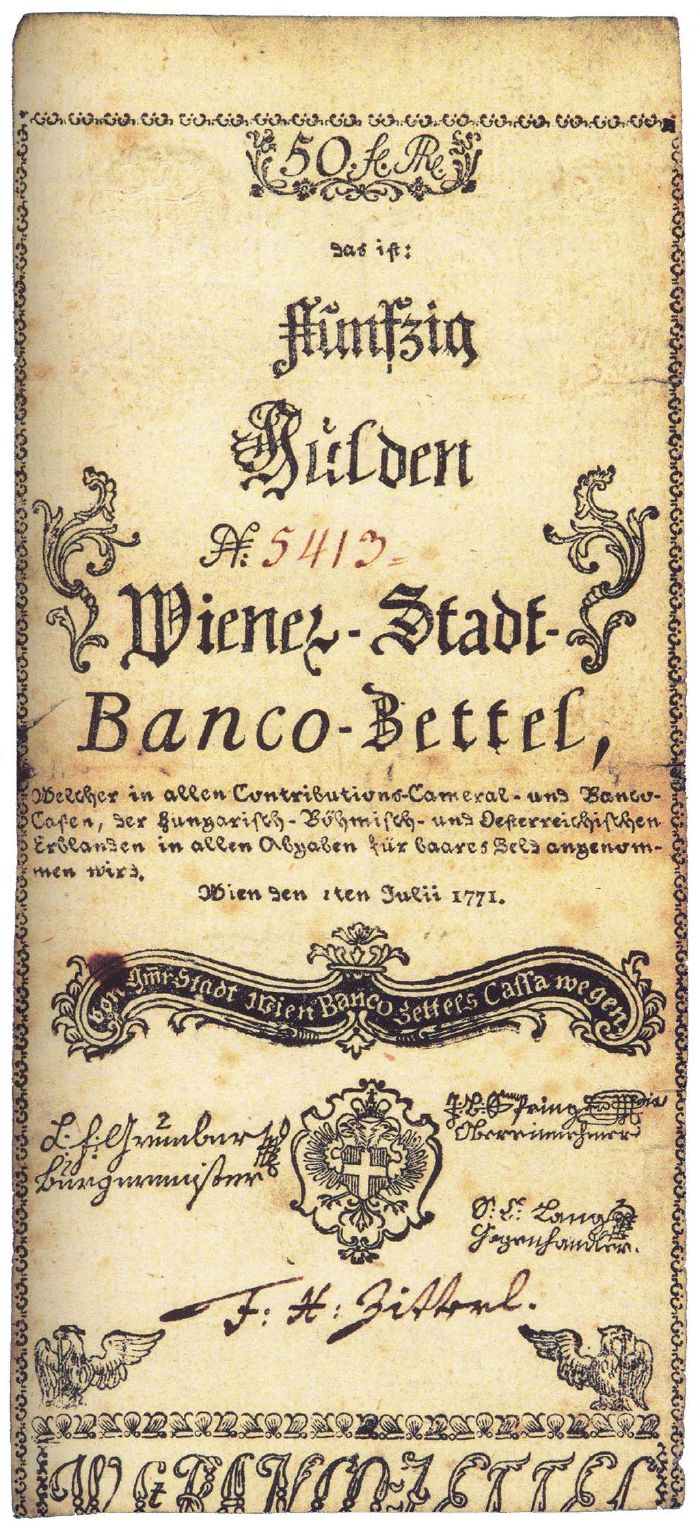 50. fl. Rh.
das ist:
Fünfzig
Gulden
N: 5413
Wiener-Stadt-
Banco-Zettel,
Welcher in allen Contributions-Cameral- und Banco-
Casen, der Hungarisch-Böhmisch- und Oesterreichischen
Erblanden in allen Abgaben für baares Geld angenom-
men wird.
Wien den 1ten Julii 1771.
Von Stadt Wien Banco Zettels Cassa wegen
Burgermeister
Obereinnehmer
Lang
Gegenhandler.
F: H: Zitterl.